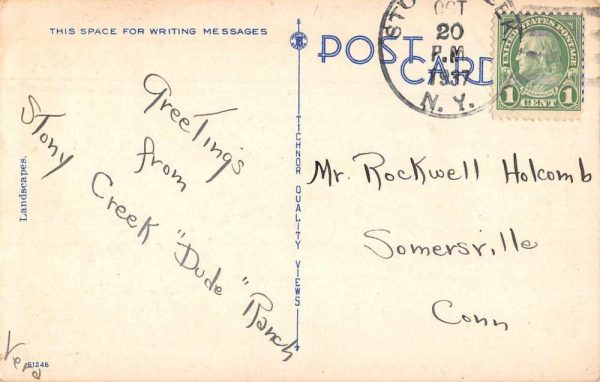 THIS SPACE FOR WRITING MESSAGES
POST CARD
OCT
20
P.M
1937
N. Y.
UNITED STATES POSTAGE
FRANKLIN
1 CENT 1
Greetings
from
Stony Creek "Dude" Ranch
Vera
Landscapes.
61246
TICHNOR QUALITY VIEWS
Mr. Rockwell Holcomb
Somersville
Conn